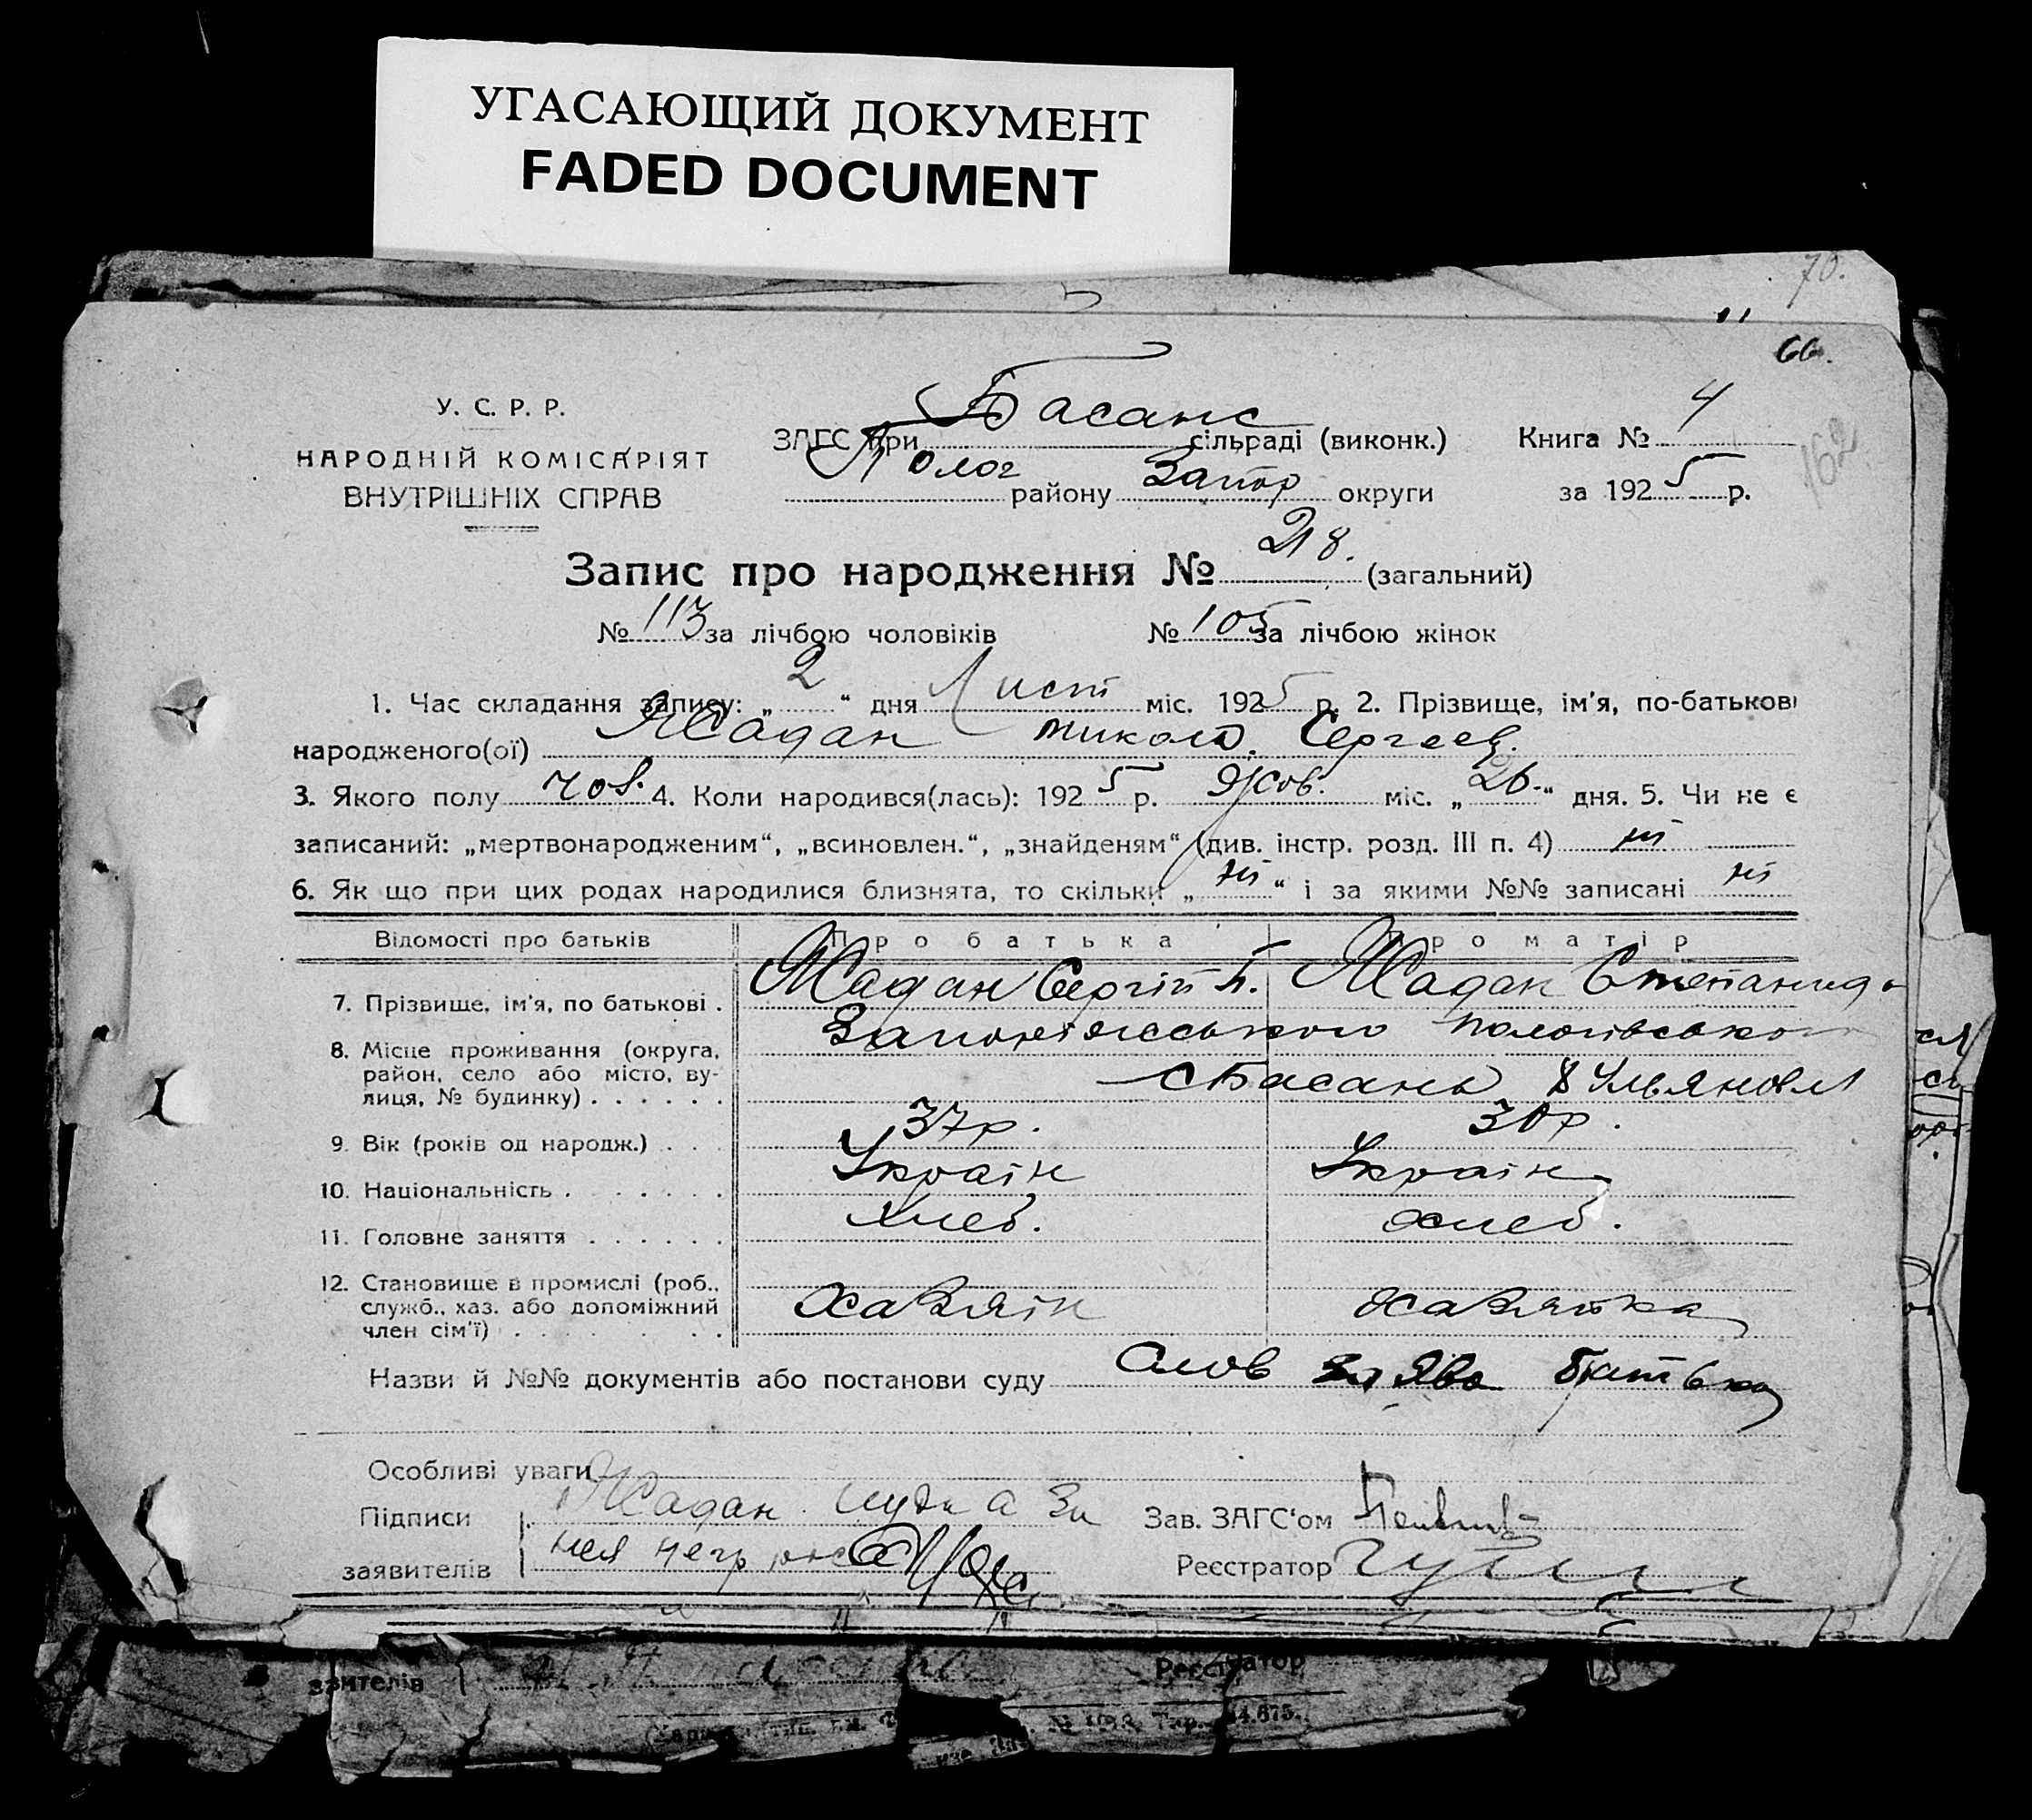 УГАСАЮЩИЙ ДОКУМЕНТ
FADED DOCUMENT
70.
66.
У. С. Р. Р.
НАРОДНІЙ КОМІСАРІЯТ
ВНУТРІШНІХ СПРАВ
ЗАГС при Басанс сільраді (виконк.) Книга № 4
162
Полог району Запор округи за 1925 р.
Запис про народження № 218. (загальний)
№ 113 за лічбою чоловіків № 105 за лічбою жінок
1. Час складання запису: „2“ дня Лист міс. 1925 р. 2. Прізвище, ім'я, по-батькові
народженого(ої) Жадан Микола Сергеев.
3. Якого полу чов. 4. Коли народився(лась): 1925 р. Жов. міс. „26.“ дня. 5. Чи не є
записаний: „мертвонародженим“, „всиновлен.“, „знайденям“ (див. інстр. розд. III п. 4) ні
6. Як що при цих родах народилися близнята, то скільки „ні“ і за якими №№ записані ні
Відомості про батьків Про батька Про матір
7. Прізвище, ім'я, по батькові . Жадан Сергій П. Жадан Степанида
8. Місце проживання (округа, Запоріжського Пологівського
район, село або місто, ву-
лиця, № будинку) . . . . . . с Басань
9. Вік (років од народж.) . . . 37р. 30р.
10. Національність . . . . . . . Україн Україн
11. Головне заняття . . . . . . Хлеб. хлеб.
12. Становище в промислі (роб.,
служб., хаз. або допоміжний Хазяін Хазяйка
член сім'ї) . . . . . . .
Назви й №№ документів або постанови суду Слов заява батька
Особливі уваги
Підписи Жадан Зав. ЗАГС'ом
заявителів Реєстратор
явителів Реєстратор